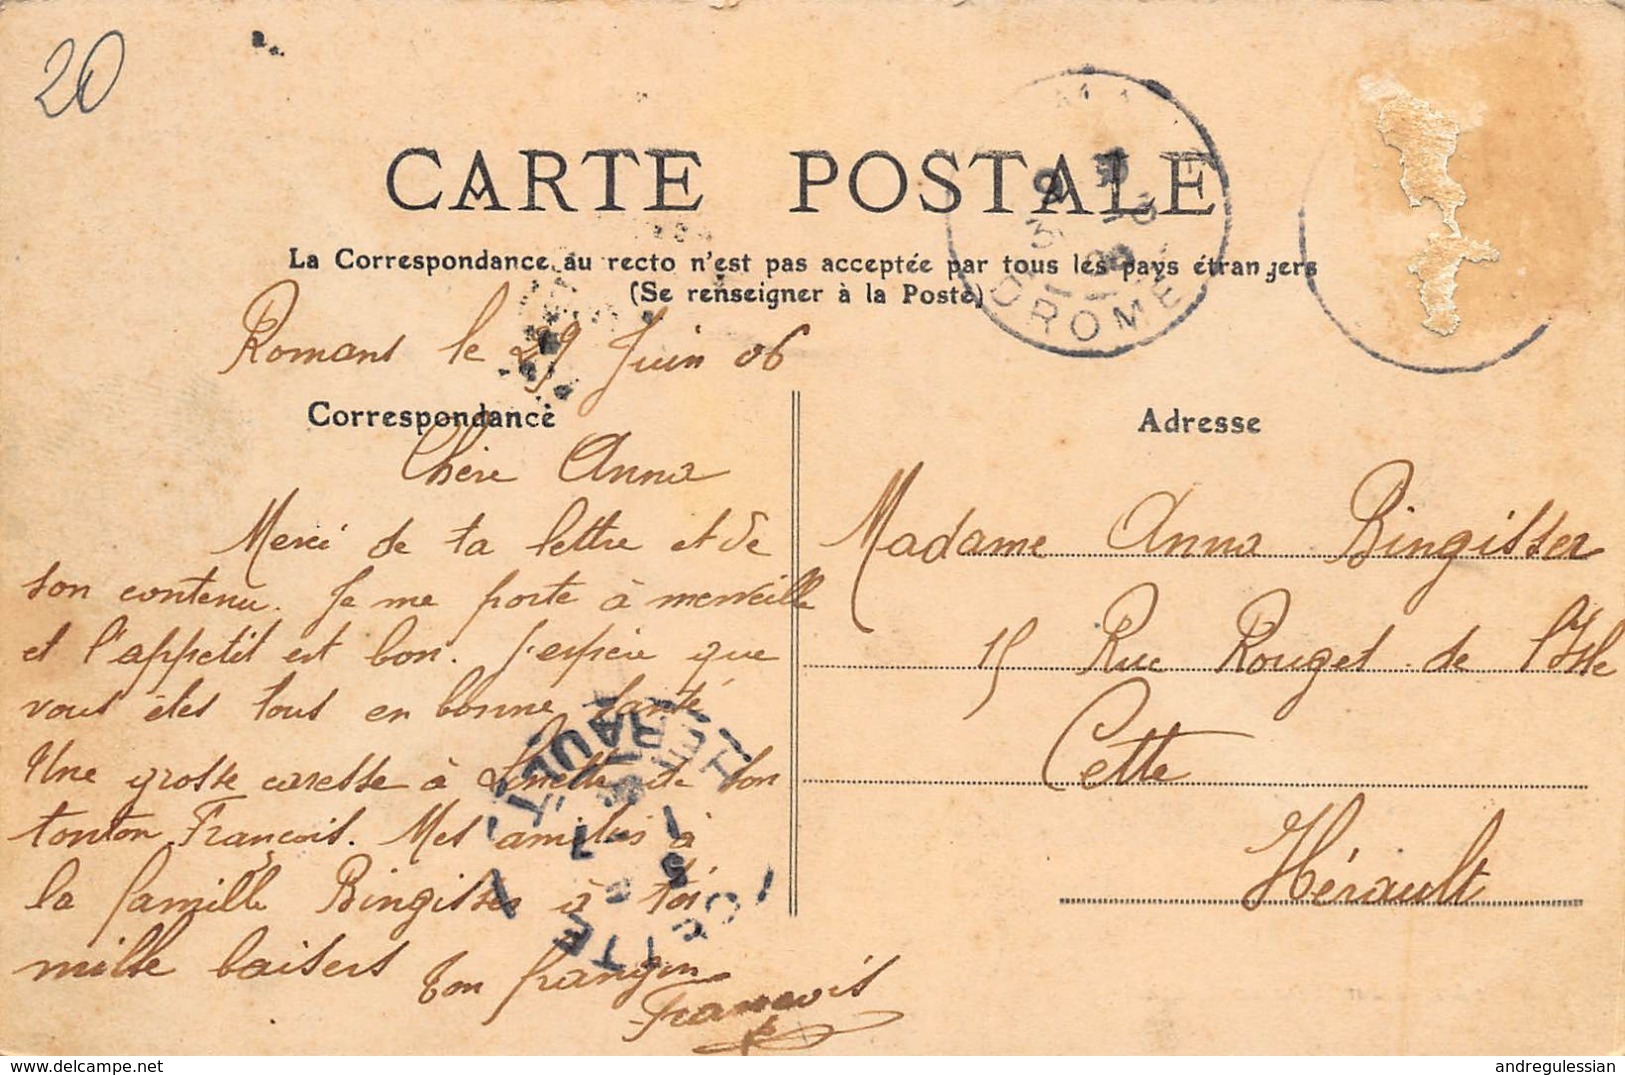 20
CARTE POSTALE
La Correspondance au recto n'est pas acceptée par tous les pays étrangers
(Se renseigner à la Poste)
DROME
Romans le 29 Juin 06
Correspondance
Adresse
Chère Anna
Merci de ta lettre et de
son contenu. Je me porte à merveille
et l'appetit est bon. J'espère que
vous êtes tous en bonne santé
Une grosse caresse à de son
tonton François. Mes amitiés à
la famille Bingisser à toi
mille baisers ton frangin
François
Madame Anna Bingisser
15 Rue Rouget de l'Isle
Cette
Hérault
CETTE
HERAULT
andregulessian